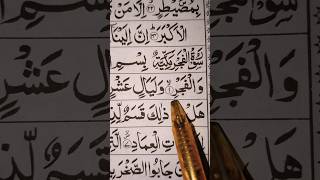 بِمُصَۜيْطِرٍ ۙ اِلَّا مَنْ
الْاَكْبَرَ ؕ اِنَّ اِلَيْنَا
سُوْرَةُ الْفَجْرِ مَكِّيَّةٌ بِسْمِ
وَالْفَجْرِ ۙ وَلَيَالٍ عَشْرٍ
هَلْ ذٰلِكَ قَسَمٌ
الْعِمَادِ ۙ
جَابُوا الصَّخْرَ